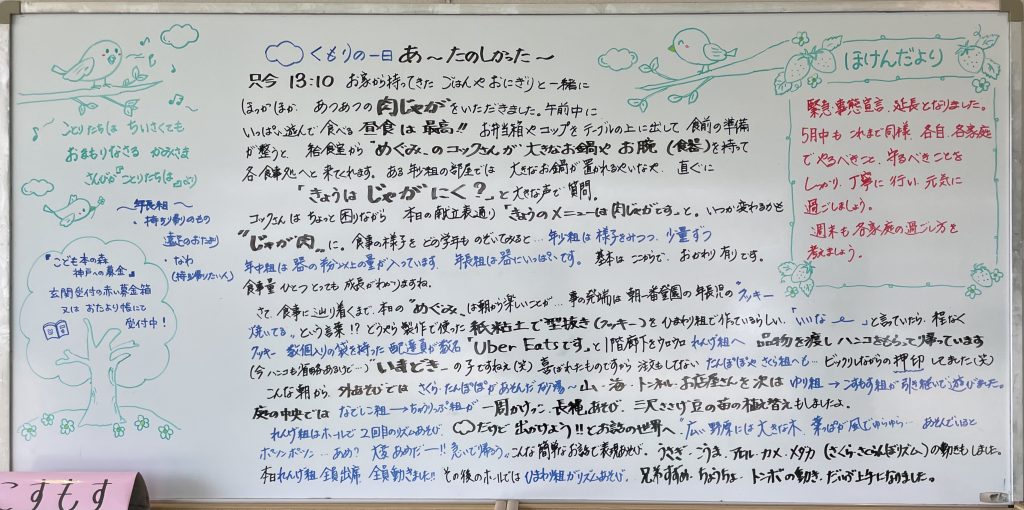 ことりたちは ちいさくても
おまもりなさる かみさま
さんびか『ことりたちは』より
〜年長組〜
・持ち帰りのもの
遠足のおたより
・なわ
(持ち帰りたい人)
『こども本の森
神戸への募金』
玄関受付の赤い募金箱
又は おたより帳にて
受付中!
くもりの一日 あ〜たのしかった〜
只今 13:10 お家から持ってきた ごはんやおにぎりと一緒に
ほっかほか、あつあつの肉じゃがをいただきました。午前中に
いっぱい遊んで食べる 昼食は最高!! お弁当箱やコップをテーブルの上に出して 食前の準備
が整うと 給食室から "めぐみ"のコックさんが 大きなお鍋や お腕(食器)を持って
各食事処へと来てくれます。ある年少組の部屋では 大きなお鍋が置かれるやいなや、直ぐに
「きょうは じゃがにく?」と大きな声で質問。
コックさんは ちょっと困りながら 本日の献立表通り「きょうのメニューは肉じゃがです」と。いつか変わるかも
"じゃが肉"に。食事の様子を どの学年ものぞいてみると…年少組は様子をみつつ、少量ずつ
年中組は 器の半分以上の量が入っています。年長組は器にいっぱいです。基本は ここからで、おかわり有りです。
食事量ひとつとっても 成長がわかりますね。
さて、食事に辿り着くまで、本日の"めぐみ"は朝から楽しいことが… 事の発端は 朝一番登園の年長児の"クッキー
焼いてる"という言葉!? どうやら製作で使った 紙粘土で型抜き(クッキー)を ひまわり組で作っているらしい、「いいなぁ〜」と言っていたら、程なく
クッキー 数個入りの袋を持った 配達員が数名「Uber Eatsです」と1階廊下をウロウロ れんげ組へ 品物を渡しハンコをもらって帰っています
(今ハンコも省略あるけど…) いまどき〜の子ですねぇ(笑) 喜ばれたものですから 注文もしてない たんぽぽや さくら組へも… ビックリしながらの 押印 してました(笑)
こんな朝から 外あそびでは さくら・たんぽぽがあそんだ砂場〜山・海・トンネル・お店屋さんを 次は ゆり組→こすもす組が引き継いで遊びました。
庭の中央では なでしこ組→ちゅうりっぷ組が 一周かけっこ・長縄あそび、三尺ささげ豆の苗の植え替えもしましたよ。
れんげ組はホールで 2回目のリズムあそび、だけど 出かけよう!! とお話の世界へ "広い野原には 大きな木、葉っぱが風でゆらゆら… あそんでいると
ポツンポツン…あめ? 大変あめだー!! 急いで帰ろう"こんな簡単なお話で表現あそび。うさぎ・こうま・アヒル・カメ・メダカ(さくら・さくらんぼリズム)の動きもしました。
本日れんげ組全員出席 全員動きました!! その後のホールでは ひまわり組がリズムあそび。兄弟すずめ、ちょうちょ、トンボの動き、だいぶ上手になりました。
ほけんだより
緊急事態宣言、延長となりました。
5月中も これまで同様 各自、各家庭
でやるべきこと、守るべきことを
しっかり、丁寧に行い、元気に
過ごしましょう。
週末も各家庭の過ごし方を
考えましょう。
こすもす